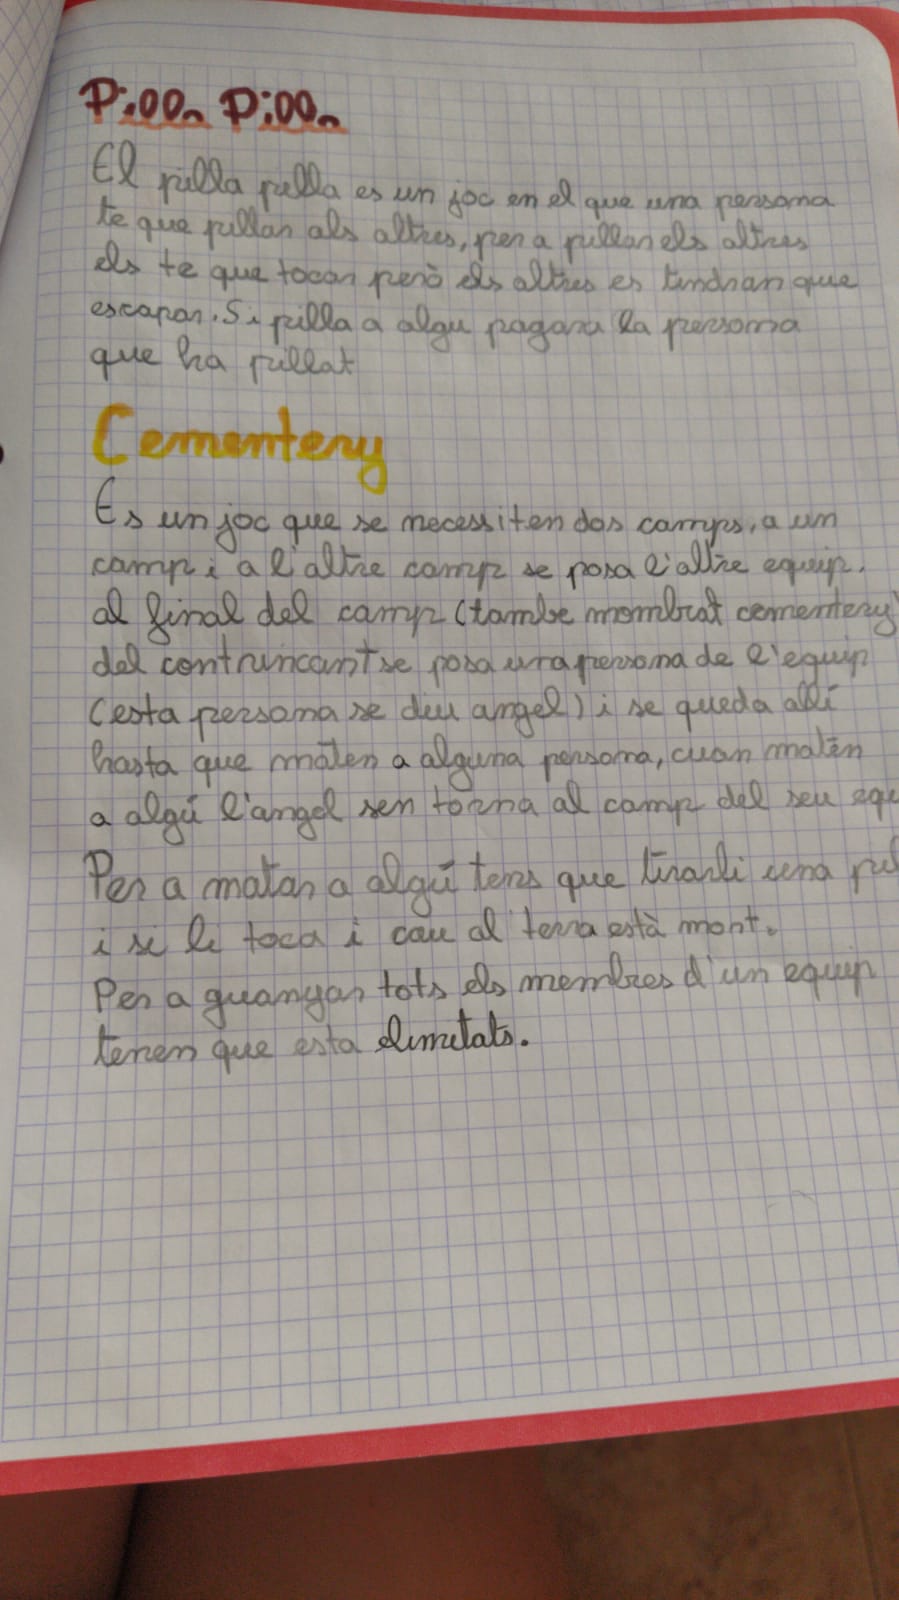 Pilla Pilla
El pilla pilla es un joc en el que una persona
te que pillar als altres, per a pillar els altres
els te que tocar però els altres es tindran que
escapar. Si pilla a algu pagara la persona
que ha pillat
Cementery
Es un joc que se necessiten dos camps, a un
camp i a l'altre camp se posa l'altre equip.
al final del camp (tambe nombrat cementery)
del contrincant se posa una persona de l'equip
(esta persona se diu angel) i se queda allí
hasta que maten a alguna persona, cuan maten
a algú l'angel sen torna al camp del seu equ
Per a matar a algú tens que tirarli una pil
i si li toca i cau al terra està mort.
Per a guanyar tots els membres d'un equip
tenen que esta elimitats.